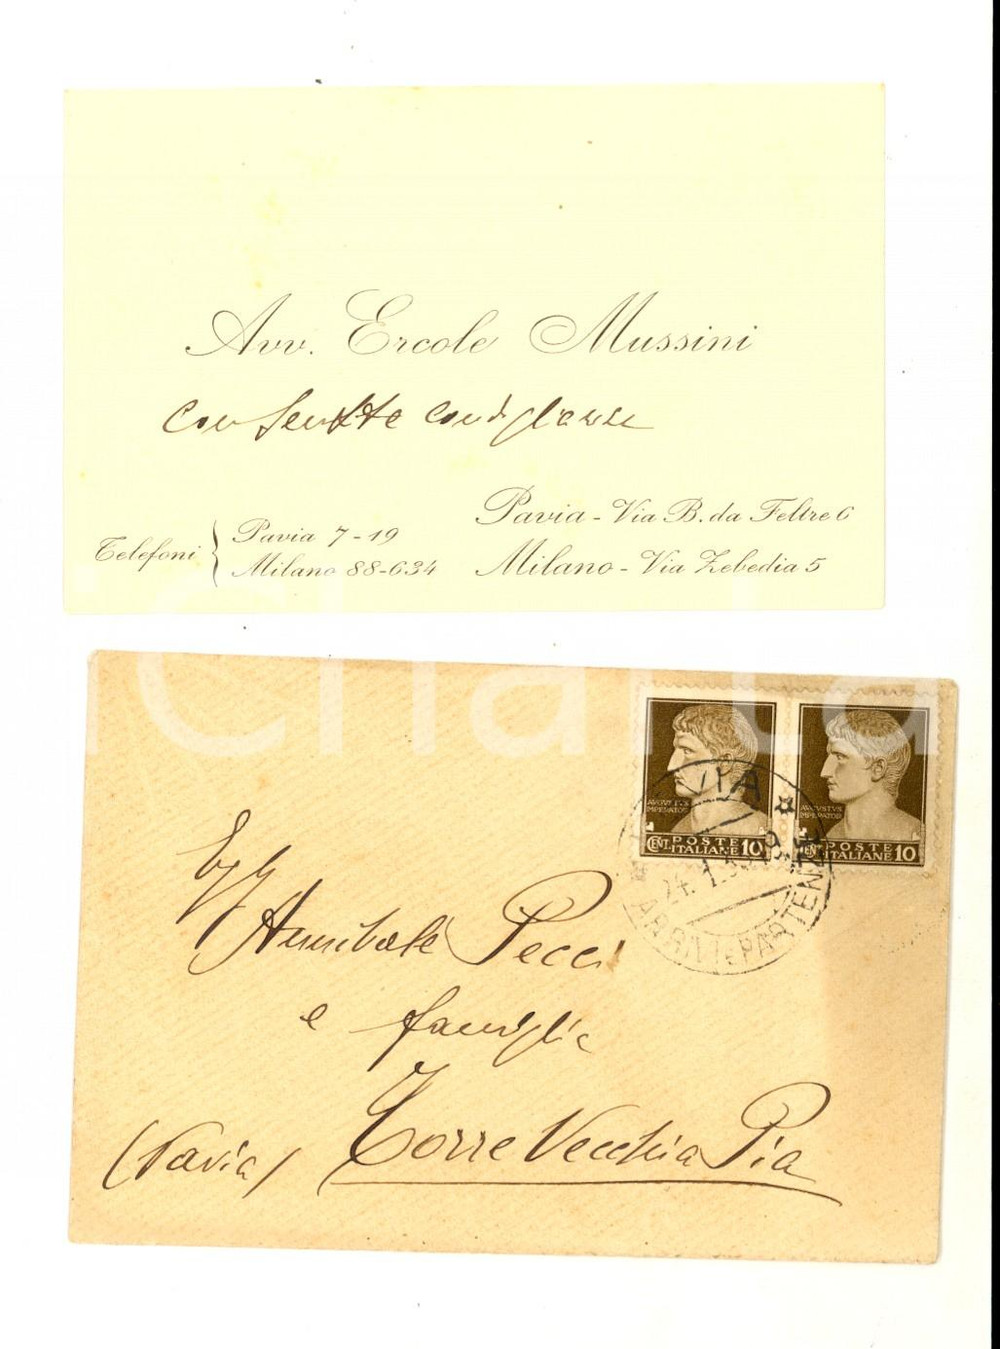 Avv. Ercole Mussini
con sentite condoglianze
Telefoni { Pavia 7-19
Milano 88-634
Pavia - Via B. da Feltre 6
Milano - Via Zebedia 5
iCharta
AVGVSTVS
IMPERATOR
CENT. POSTE ITALIANE 10
AVGVSTVS
IMPERATOR
CENT. POSTE ITALIANE 10
PAVIA
ARRIVI E PARTENZE
Annibale Pecci
e famiglia
Torre Vecchia Pia
(Pavia)